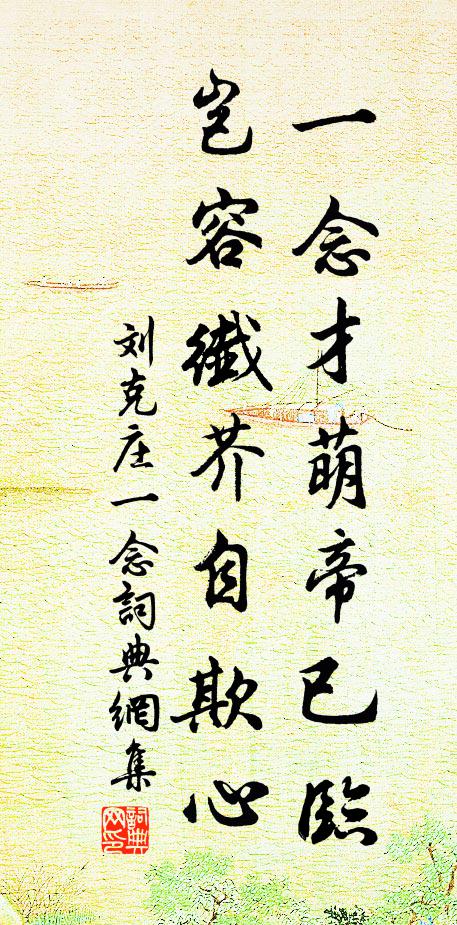 一念才萌帝已臨
岂容纖芥自欺心
刘克庄一念詞典網集
詞典
网印